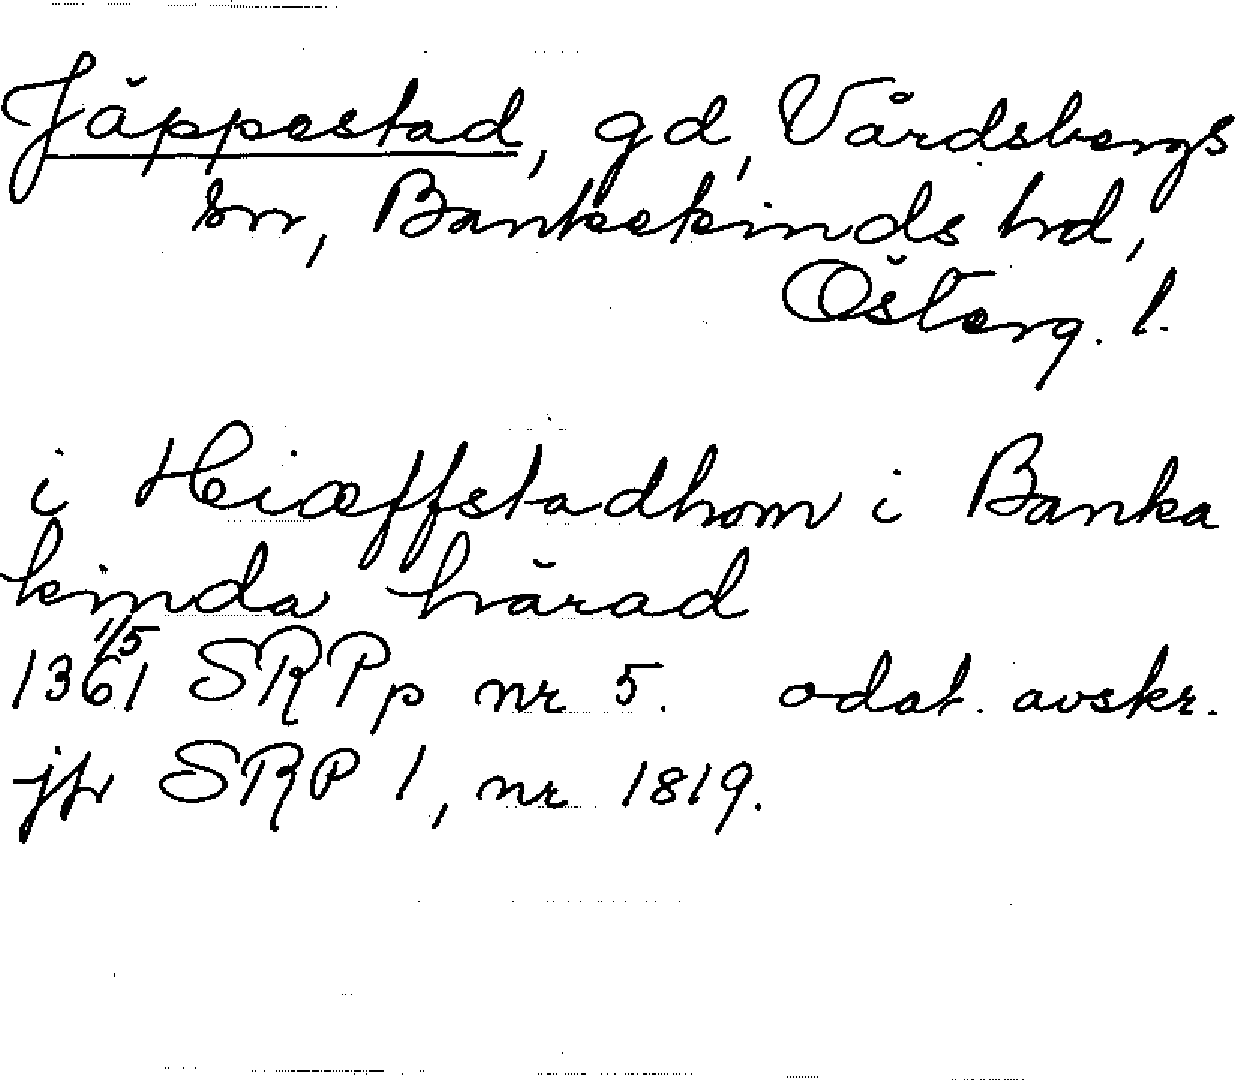 Jäppestad, gd, Vårdsbergs
sn, Bankekinds hd,
Österg. l.
i Hiæffstadhom i Banka
kinda härad
1361 1/5 SRPp nr 5. odat. avskr.
jfr SRP 1, nr 1819.